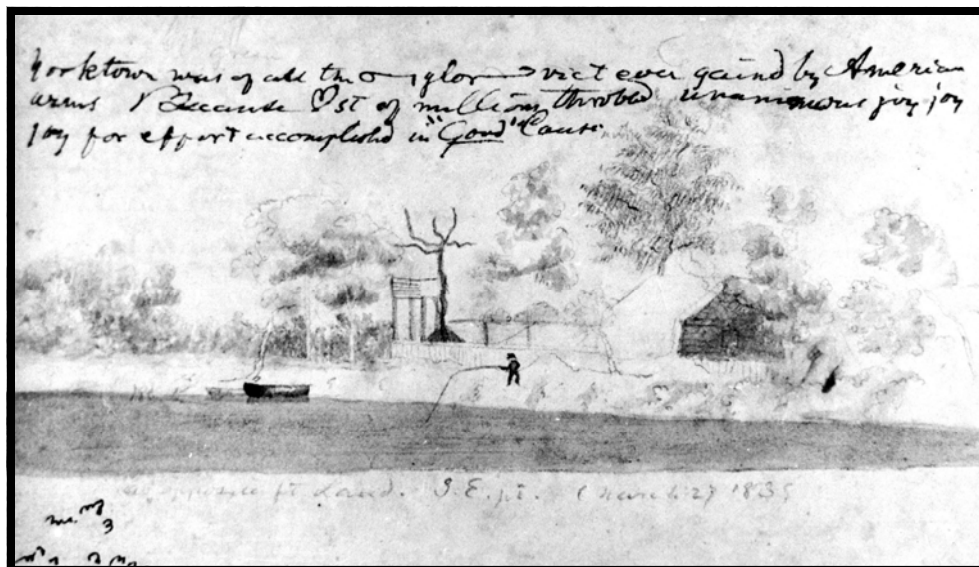 Yorktown was of all the glor vict ever gaind by American
arms Because st of millions throbbed unanimous joy joy
joy for effort accomplishd in "Good" Cause
opposite pt Land. S.E. pt. (March 27 1835
3